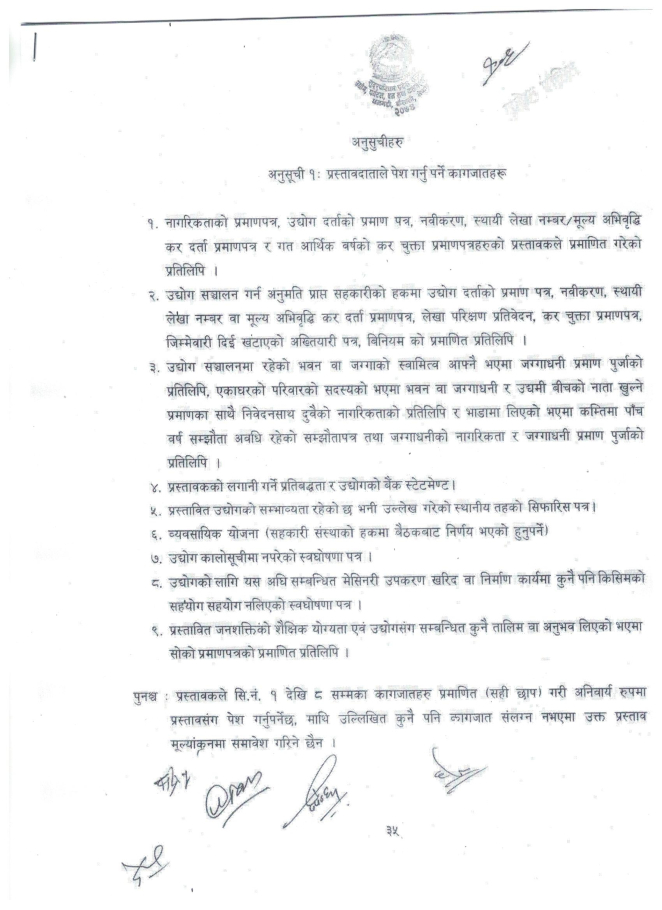 अनुसुचीहरु
अनुसूची १: प्रस्तावदाताले पेश गर्नु पर्ने कागजातहरू
१. नागरिकताको प्रमाणपत्र, उद्योग दर्ताको प्रमाण पत्र, नवीकरण, स्थायी लेखा नम्बर/मूल्य अभिवृद्धि
कर दर्ता प्रमाणपत्र र गत आर्थिक वर्षको कर चुक्ता प्रमाणपत्रहरुको प्रस्तावकले प्रमाणित गरेको
प्रतिलिपि ।
२. उद्योग सञ्चालन गर्न अनुमति प्राप्त सहकारीको हकमा उद्योग दर्ताको प्रमाण पत्र, नवीकरण, स्थायी
लेखा नम्बर वा मूल्य अभिवृद्धि कर दर्ता प्रमाणपत्र, लेखा परिक्षण प्रतिवेदन, कर चुक्ता प्रमाणपत्र,
जिम्मेवारी दिई खटाएको अख्तियारी पत्र, बिनियम को प्रमाणित प्रतिलिपि ।
३. उद्योग सञ्चालनमा रहेको भवन वा जग्गाको स्वामित्व आफ्नै भएमा जग्गाधनी प्रमाण पुर्जाको
प्रतिलिपि, एकाघरको परिवारको सदस्यको भएमा भवन वा जग्गाधनी र उद्यमी बीचको नाता खुल्ने
प्रमाणका साथै निवेदनसाथ दुवैको नागरिकताको प्रतिलिपि र भाडामा लिएको भएमा कम्तिमा पाँच
वर्ष सम्झौता अवधि रहेको सम्झौतापत्र तथा जग्गाधनीको नागरिकता र जग्गाधनी प्रमाण पुर्जाको
प्रतिलिपि ।
४. प्रस्तावकको लगानी गर्ने प्रतिबद्धता र उद्योगको बैंक स्टेटमेण्ट।
५. प्रस्तावित उद्योगको सम्भाव्यता रहेको छ भनी उल्लेख गरेको स्थानीय तहको सिफारिस पत्र।
६. व्यवसायिक योजना (सहकारी संस्थाको हकमा बैठकबाट निर्णय भएको हुनुपर्ने)
७. उद्योग कालोसूचीमा नपरेको स्वघोषणा पत्र ।
८. उद्योगको लागि यस अघि सम्बन्धित मेसिनरी उपकरण खरिद वा निर्माण कार्यमा कुनै पनि किसिमको
सहयोग सहयोग नलिएको स्वघोषणा पत्र ।
९. प्रस्तावित जनशक्तिको शैक्षिक योग्यता एवं उद्योगसंग सम्बन्धित कुनै तालिम वा अनुभव लिएको भएमा
सोको प्रमाणपत्रको प्रमाणित प्रतिलिपि ।
पुनश्च : प्रस्तावकले सि.नं. १ देखि ८ सम्मका कागजातहरु प्रमाणित (सही छाप) गरी अनिवार्य रुपमा
प्रस्तावसंग पेश गर्नुपर्नेछ, माथि उल्लिखित कुनै पनि कागजात संलग्न नभएमा उक्त प्रस्ताव
मूल्यांकनमा समावेश गरिने छैन ।
३५